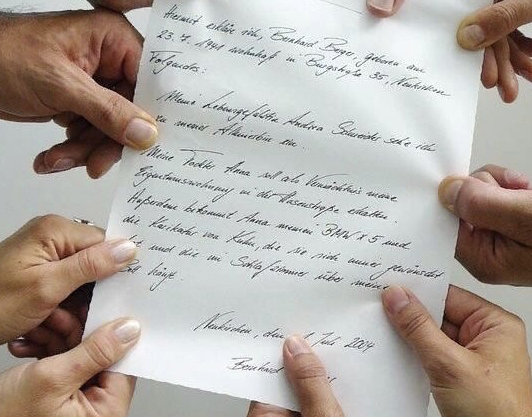 Hiermit erkläre ich, Bernhard Beyer, geboren am
23. 7. 1941 wohnhaft in Burgstraße 35, Neukirchen
Folgendes:
Meine Lebensgefährtin Andrea Schneider setze ich
zu meiner Alleinerbin ein.
Meine Tochter Anna soll als Vermächtnis meine
Eigentumswohnung in der Hasenstraße erhalten.
Außerdem bekommt Anna meinen BMW X5 und
die Karikatur von Kuhn, die sie sich immer gewünscht
und die im Schlafzimmer über meinem
Bett hängt.
Neukirchen, den Juli 2004
Bernhard